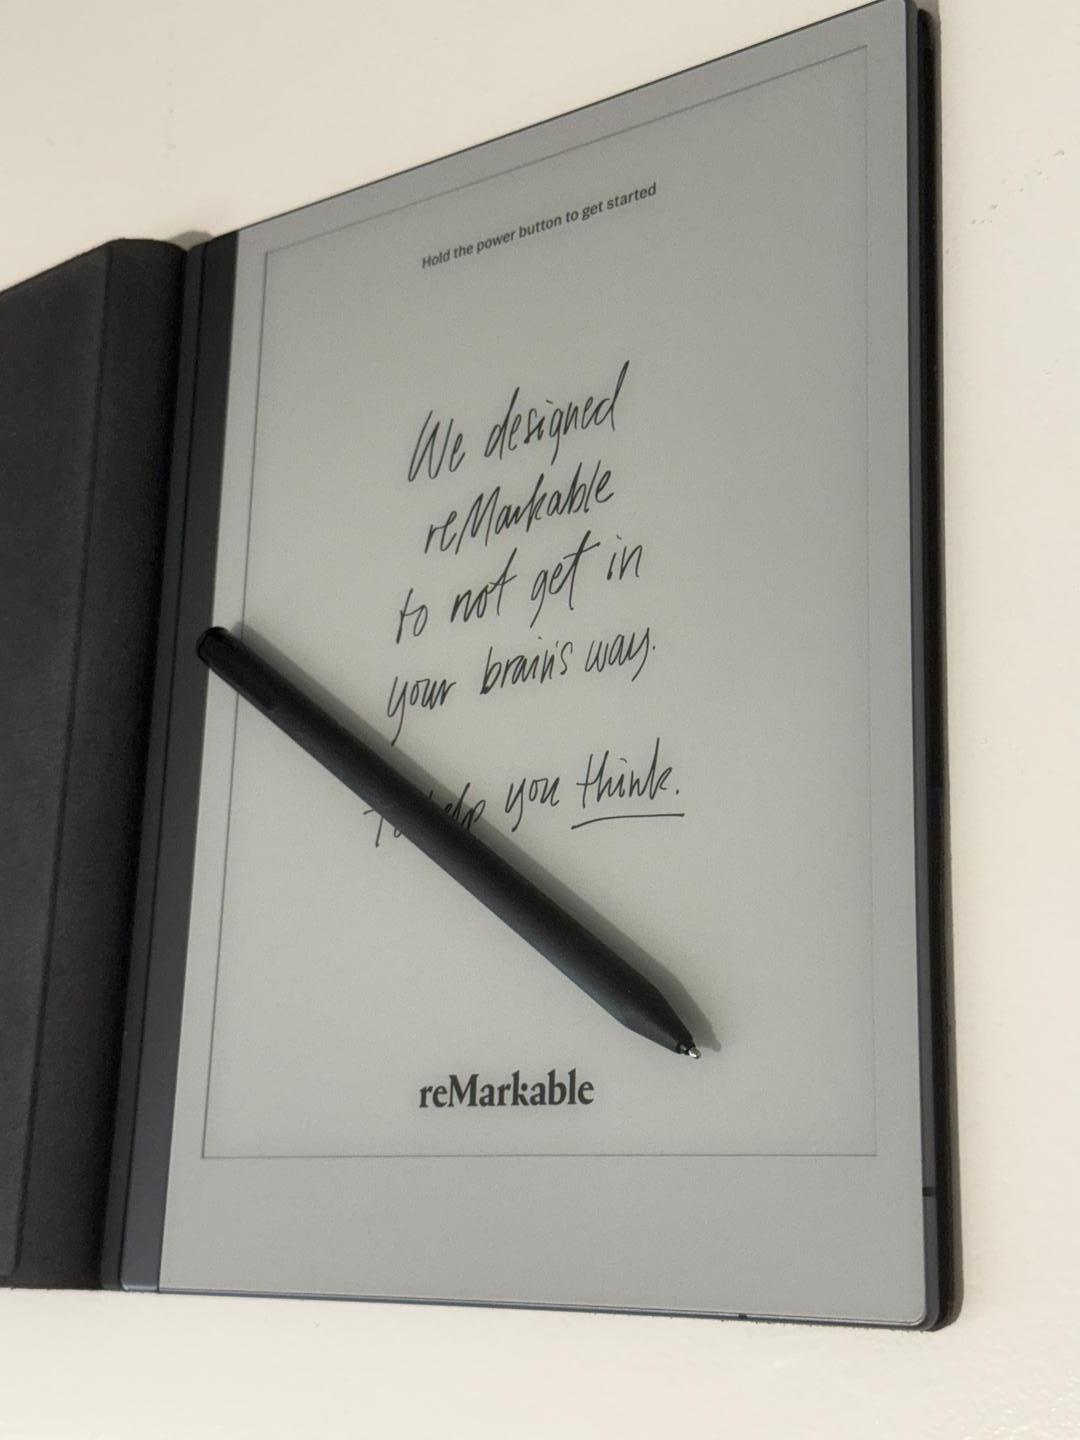 Hold the power button to get started
We designed
reMarkable
to not get in
your brain's way.
To help you think.
reMarkable